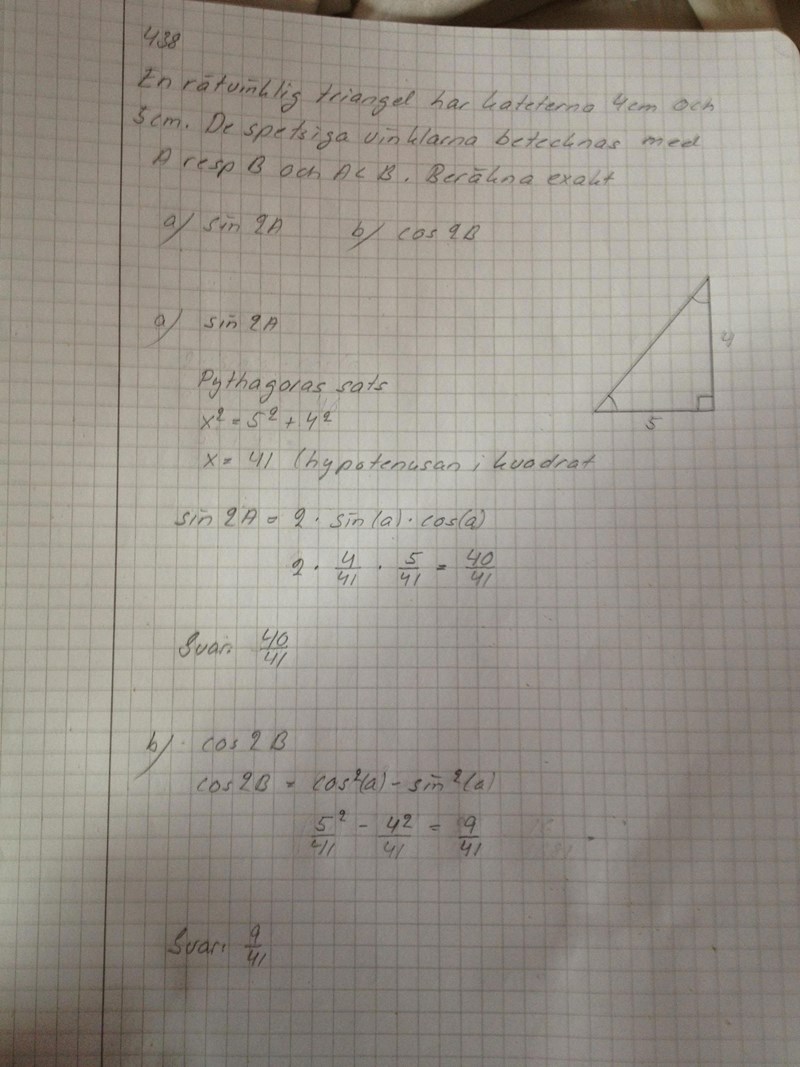 438
En rätvinklig triangel har kateterna 4cm och
5cm. De spetsiga vinklarna betecknas med
A resp B och A < B. Beräkna exakt
a) sin 2A b) cos 2B
a) sin 2A
4
5
Pythagoras sats
x² = 5² + 4²
x = 41 (hypotenusan i kvadrat
sin 2A = 2 · sin(a) · cos(a)
2 · 4/41 · 5/41 = 40/41
Svar: 40/41
b) cos 2B
cos 2B = cos²(a) - sin²(a)
5²/41 - 4²/41 = 9/41
Svar: 9/41